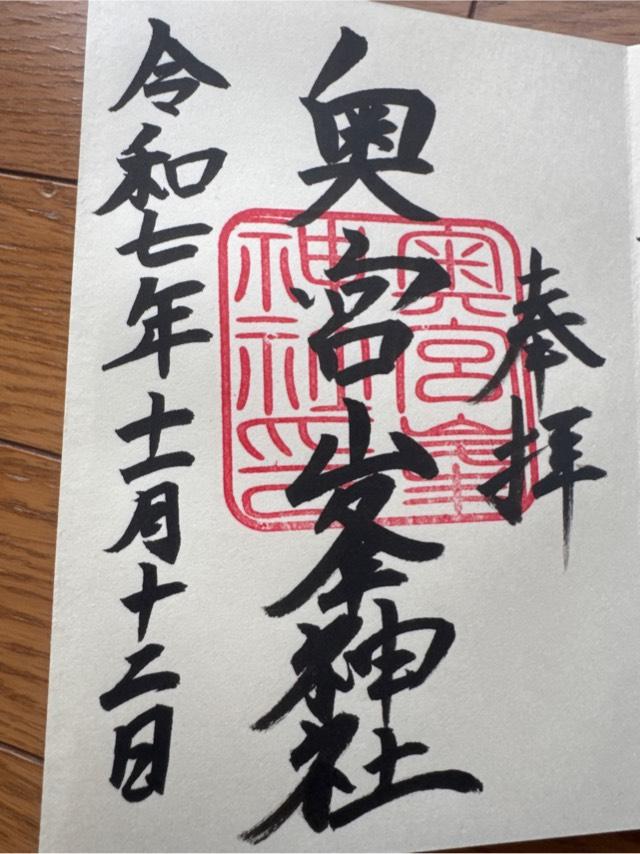 奉拝
奥宮峯神社
奥宮峯
神社印
令和七年十一月十二日